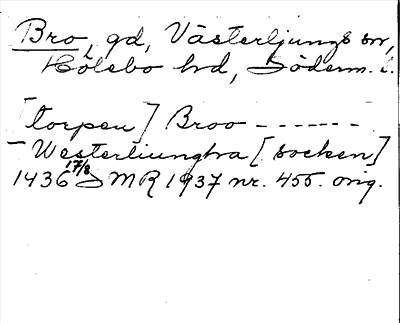 Bro, gd, Västerljungs sn,
Hölebo hd, Söderm. l.
[torpen] Broo - - - - - - -
- Westerliungha [socken]
1436 17/8 SMR 1937 nr. 455. orig.